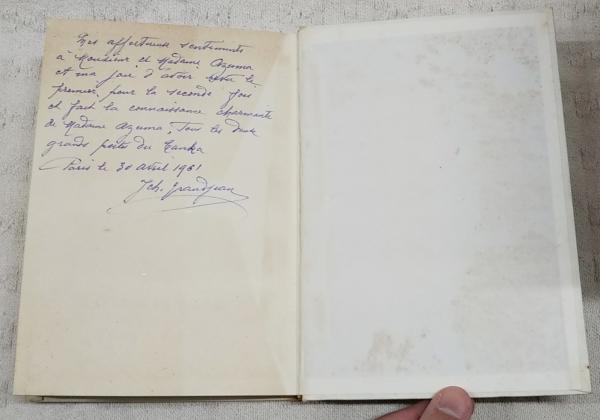 Très affectueux sentiments
à Monsieur et Madame Azuma
et ma joie d'avoir revu le
premier pour la seconde fois
et fait la connaissance charmante
de Madame Azuma, Tous les deux
grands poètes du Tanka
Paris le 30 avril 1961
Jeh. Grandjean